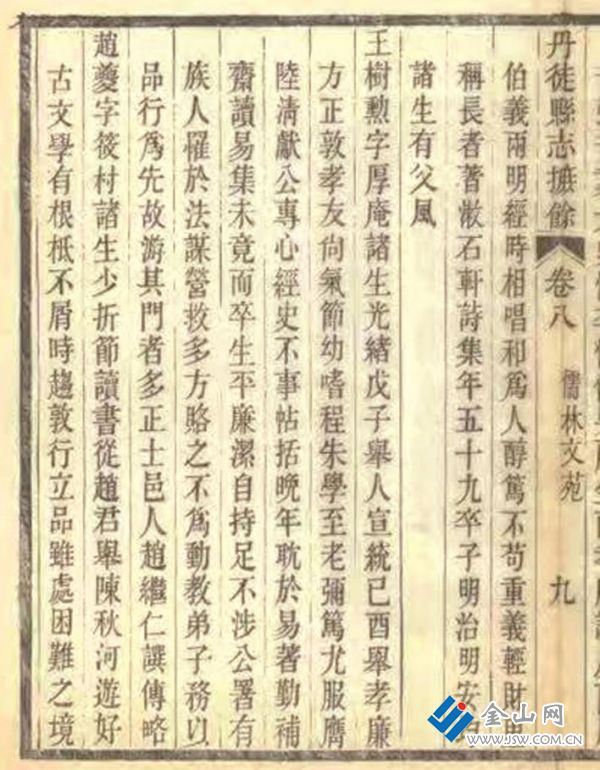 丹徒縣志摭餘 卷八 儒林文苑 九
伯義兩明經時相唱和爲人醇篤不苟重義輕財
稱長者著敝石軒詩集年五十九卒子明治明安
諸生有父風
王樹勲字厚庵諸生光緒戊子舉人宣統己酉舉孝廉
方正敦孝友尙氣節幼嗜程朱學至老彌篤尤服膺
陸淸獻公專心經史不事帖括晚年耽於易著勤補
齋讀易集未竟而卒生平廉潔自持足不涉公署有
族人罹於法謀營救多方賂之不爲動教弟子務以
品行爲先故游其門者多正士邑人趙繼仁譔傳略
趙夔字筱村諸生少折節讀書從趙君舉陳秋河遊好
古文學有根柢不屑時趨敦行立品雖處困難之境
金山网
www.JSW.com.cn